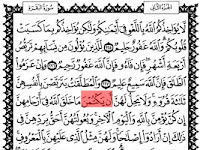 الجزء الثاني سورة البقرة
لَّا يُؤَاخِذُكُمُ ٱللَّهُ بِٱللَّغْوِ فِىٓ أَيْمَٰنِكُمْ وَلَٰكِن يُؤَاخِذُكُم بِمَا كَسَبَتْ
قُلُوبُكُمْ وَٱللَّهُ غَفُورٌ حَلِيمٌ ٢٢٥ لِّلَّذِينَ يُؤْلُونَ مِن نِّسَآئِهِمْ تَرَبُّصُ
أَرْبَعَةِ أَشْهُرٍ فَإِن فَآءُو فَإِنَّ ٱللَّهَ غَفُورٌ رَّحِيمٌ ٢٢٦ وَإِنْ عَزَمُوا۟
ٱلطَّلَٰقَ فَإِنَّ ٱللَّهَ سَمِيعٌ عَلِيمٌ ٢٢٧ وَٱلْمُطَلَّقَٰتُ يَتَرَبَّصْنَ بِأَنفُسِهِنَّ
ثَلَٰثَةَ قُرُوٓءٍ وَلَا يَحِلُّ لَهُنَّ أَن يَكْتُمْنَ مَا خَلَقَ ٱللَّهُ فِىٓ أَرْحَامِهِنَّ
إِن كُنَّ يُؤْمِنَّ بِٱللَّهِ وَٱلْيَوْمِ ٱلْءَاخِرِ وَبُعُولَتُهُنَّ أَحَقُّ بِرَدِّهِنَّ فِى
ذَٰلِكَ إِنْ أَرَادُوٓا۟ إِصْلَٰحًا وَلَهُنَّ مِثْلُ ٱلَّذِى عَلَيْهِنَّ بِٱلْمَعْرُوفِ